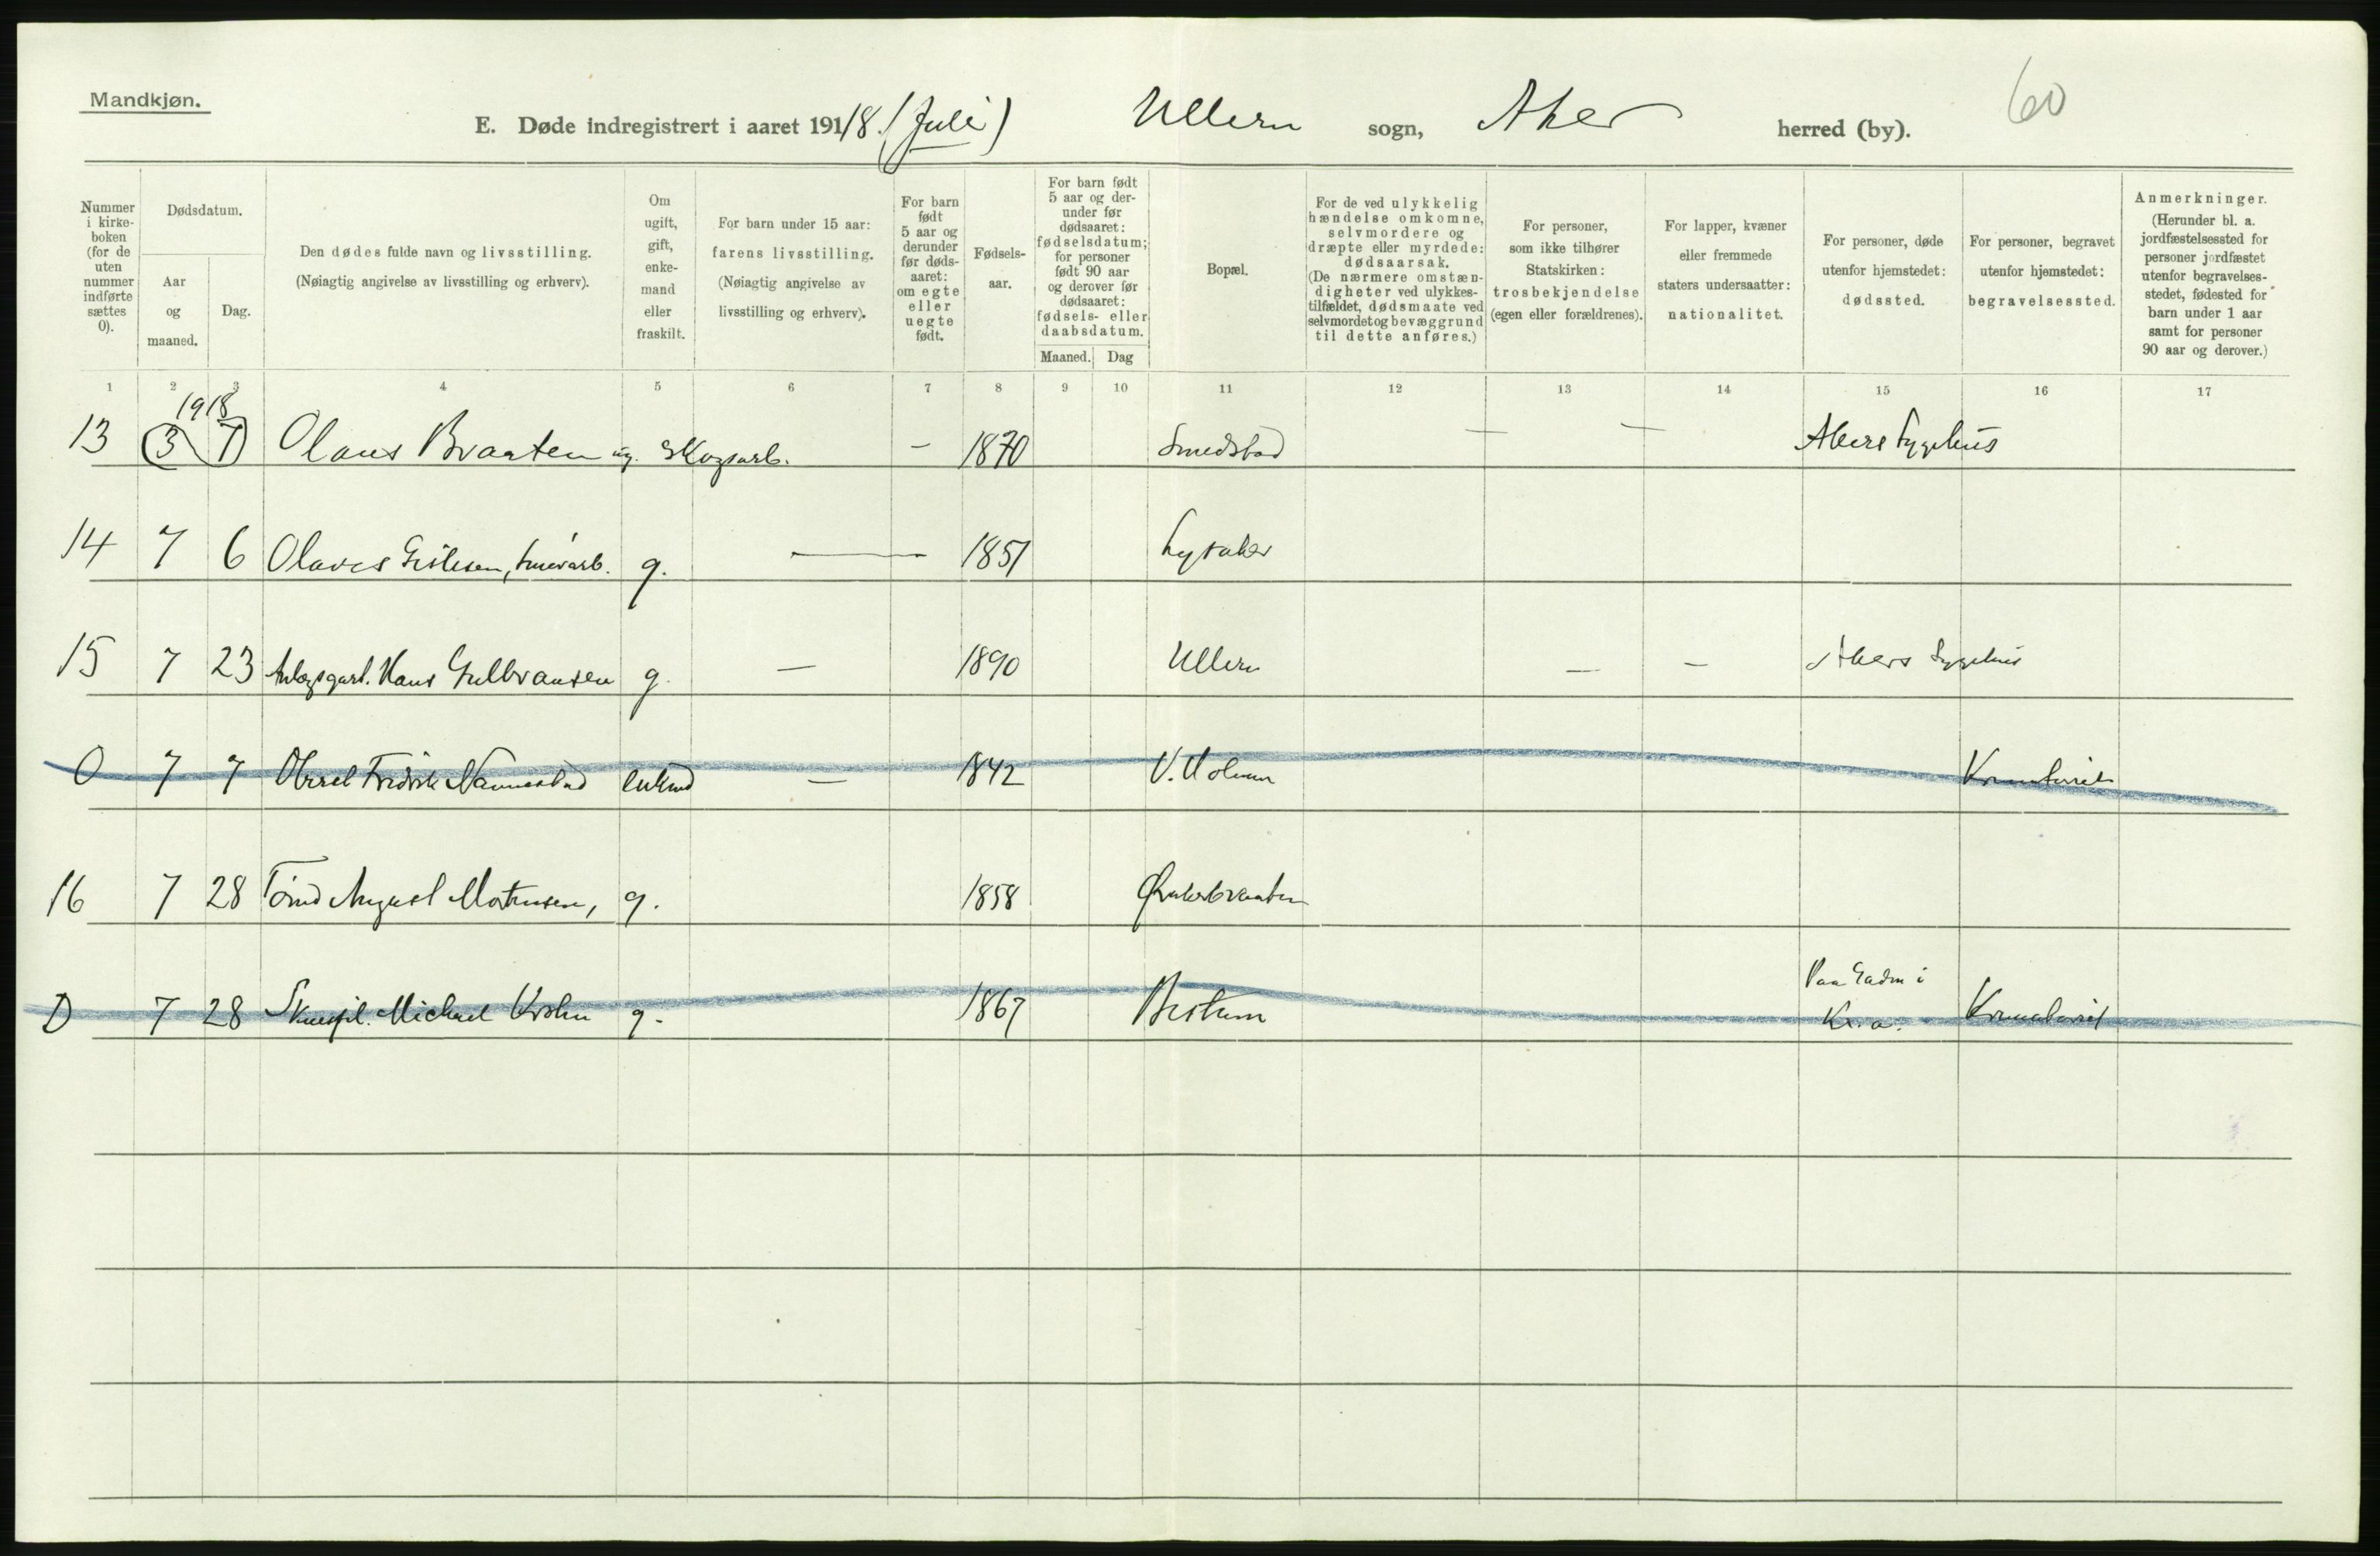 Mandkjøn.
60
E. Døde indregistrert i aaret 1918 (Juli) Ullern sogn, Aker herred (by).
Nummer i kirke-boken (for de uten nummer indførte sættes 0).
Dødsdatum.
Aar og maaned.
Dag.
Den dødes fulde navn og livsstilling.
(Nøiagtig angivelse av livsstilling og erhverv).
Om ugift, gift, enke-mand eller fraskilt.
For barn under 15 aar: farens livsstilling.
(Nøiagtig angivelse av livsstilling og erhverv).
For barn født 5 aar og derunder før døds-aaret: om egte eller uegte født.
Fødsels-aar.
For barn født 5 aar og der-under før dødsaaret: fødselsdatum; for personer født 90 aar og derover før dødsaaret: fødsels- eller daabsdatum.
Maaned. Dag
Bopæl.
For de ved ulykkelig hændelse omkomne, selvmordere og dræpte eller myrdede: dødsaarsak.
(De nærmere omstæn-digheter ved ulykkes-tilfældet, dødsmaate ved selvmordet og bevæggrund til dette anføres.)
For personer, som ikke tilhører Statskirken: trosbekjendelse (egen eller forældrenes).
For lapper, kvæner eller fremmede staters undersaatter: nationalitet.
For personer, døde utenfor hjemstedet: dødssted.
For personer, begravet utenfor hjemstedet: begravelsessted.
Anmerkninger.
(Herunder bl. a. jordfæstelsessted for personer jordfæstet utenfor begravelses-stedet, fødested for barn under 1 aar samt for personer 90 aar og derover.)
1 2 3 4 5 6 7 8 9 10 11 12 13 14 15 16 17
1918
13 3 7 Olaus Braaten ug. Skogsarb. - 1870 Smedstad - - Akers Sygehus
14 7 6 Olaves g. - 1851 Lysaker
15 7 23 Anlægsgarb. Hans Gulbransen g. - 1890 Ullern - - Akers Sygehus
0 7 7 Fredrik Nannestad enkmd - 1842 V. Holmen Krematoriet
16 7 28 August g. 1858 Øraker­braaten
0 7 28 Skuespil. Michael Krohn g. 1867 Bestum Paa Gaden i Kr.a. Krematoriet